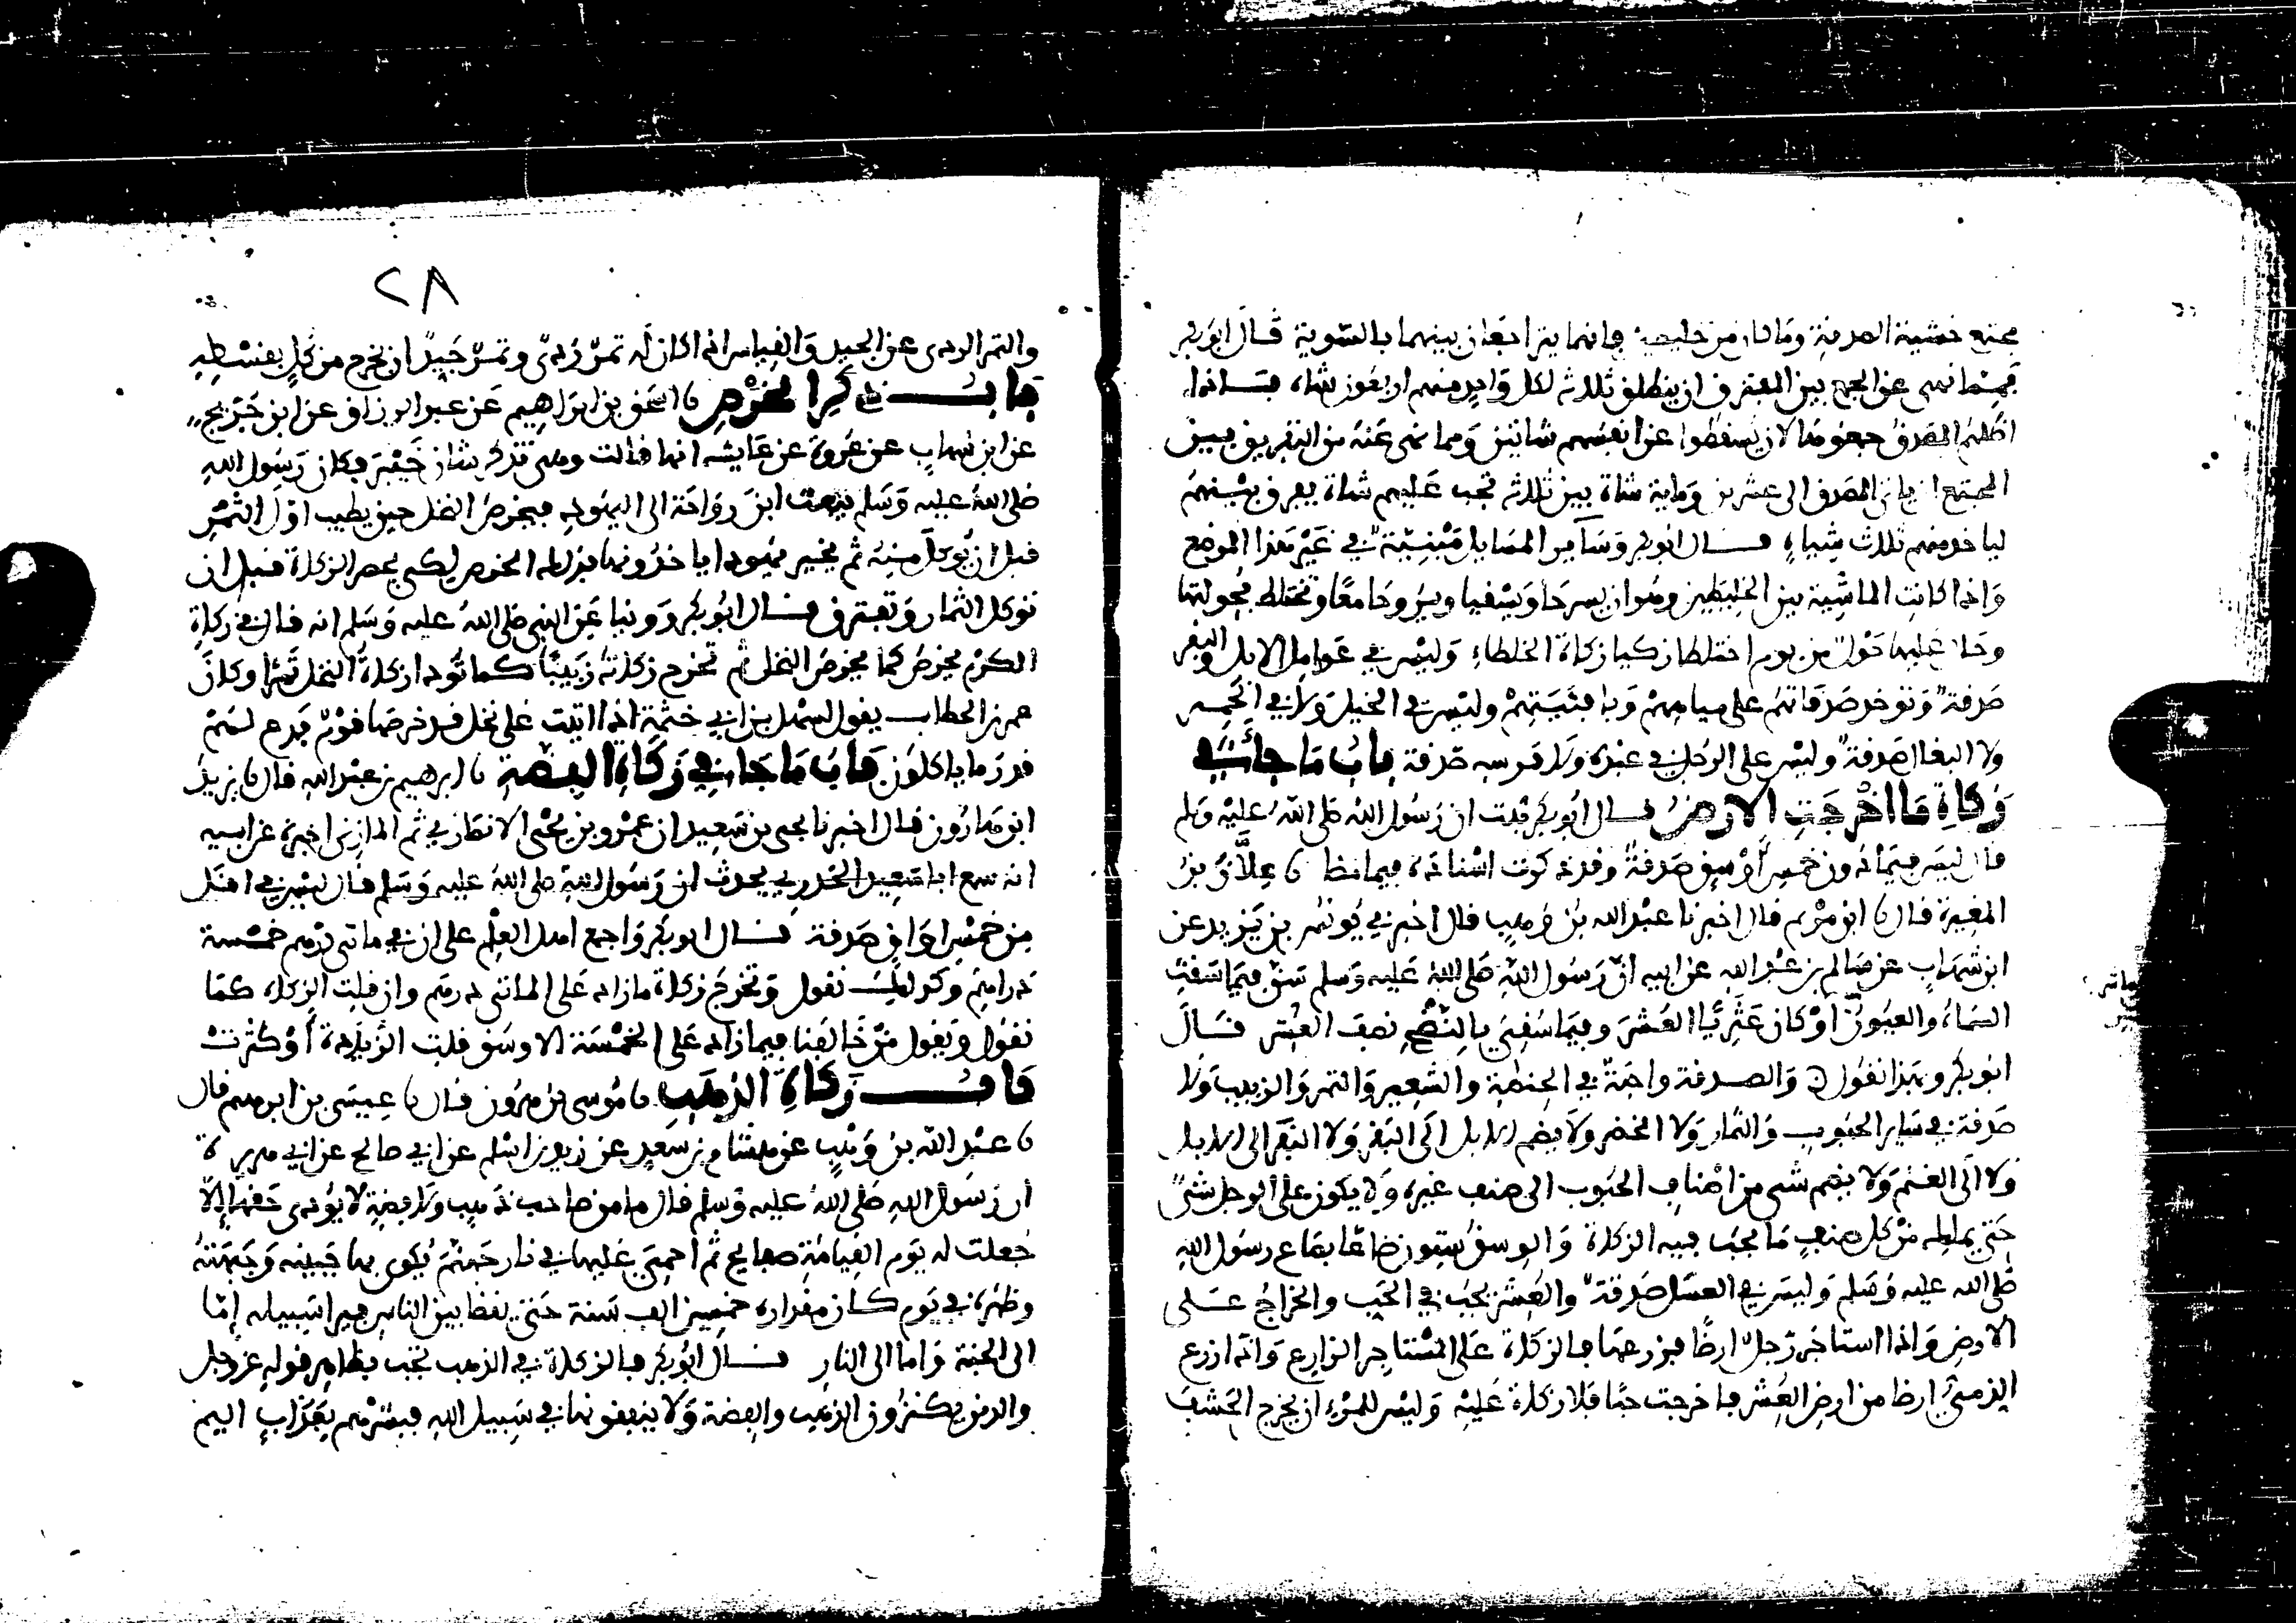 مجتمع خشية الصدقة وما كان من خليطين فانهما يتراجعان بينهما بالسوية قال ابو بكر
فمما نهى عن الجمع بين المفترق ان ينطلق ثلثة لكل واحد منهم اربعون شاة فاذا
اظلهم المصدق جمعوها لان يسقطوا عن انفسهم شاتين ومما نهى عنه من التفريق بين
المجتمع ان ياتي المصدق الى عشرين وماية شاة بين ثلثة تجب عليهم شاة يفرق بينهم
لياخذ منهم ثلث شياه قال ابو بكر وساير المسايل مبنية في غير هذا الموضع
واذا كانت الماشية بين الخليطين وهو ان يسرحا ويسقيا ويروحا معا وتختلط فحولتها
وحال عليها حول من يوم اختلطا زكيا زكاة الخلطاء وليس في عوامل الابل والبقر
صدقة وتوخذ صدقاتهم على مياههم وبافنيتهم وليس في الخيل ولا في الحمير
ولا البغال صدقة وليس على الرجل في عبده ولا فرسه صدقة باب ما جاء في
زكاة ما اخرجت الارض قال ابو بكر ثبت ان رسول الله صلى الله عليه وسلم
قال ليس فيما دون خمس اوسق صدقة وقد ذكرت اسناده فيما مضا نا علان بن
المغيرة قال نا ابن مريم قال اخبرنا عبد الله بن وهب قال اخبرني يونس بن يزيد عن
ابن شهاب عن سالم بن عبد الله عن ابيه ان رسول الله صلى الله عليه وسلم سن فيما سقت
السماء والعيون او كان عثريا العشر وفيما سقي بالنضح نصف العشر قال
ابو بكر وبهذا نقول والصدقة واجبة في الحنطة والشعير والتمر والزبيب ولا
صدقة في ساير الحبوب والثمار ولا الخضر ولا يضم الابل الى البقر ولا البقر الى الابل
ولا الى الغنم ولا يضم شي من اصناف الحبوب الى صنف غيره ولا يكون على الرجل شي
حتى يملك من كل صنف ما يجب فيه الزكاة والوسق ستون صاعا بصاع رسول الله
صلى الله عليه وسلم وليس في العسل صدقة والعشر يجب في الحب والخراج على
الارض واذا استاجر رجل ارضا فزرعها فالزكاة على المستاجر الزارع واذا زرع
الذمي ارضا من ارض العشر فاخرجت حبا فلا زكاة عليه وليس للمرء ان يخرج الحشف
٢٨
والتمر الردى عن الجيد والقياس اذا كان له تمر ردى وتمر جيد ان يخرج من كل بقسطه
باب ذكر الخرص نا اسحق بن ابراهيم عن عبد الرزاق عن ابن جريج
عن ابن شهاب عن عروة عن عايشة انها قالت وهي تذكر شان خيبر فكان رسول الله
صلى الله عليه وسلم يبعث ابن رواحة الى اليهود فيخرص النخل حين يطيب اول الثمر
قبل ان يوكل منه ثم يخير يهود اياخذونها بذلك الخرص لكي يحصر الزكاة قبل ان
توكل الثمار وتفترق قال ابو بكر روينا عن النبي صلى الله عليه وسلم انه قال في زكاة
الكرم يخرص كما يخرص النخل ثم تخرج زكاته زبيبا كما تودا زكاة النخل تمرا وكان
عمر بن الخطاب يقول لسهل بن ابي حثمة اذا اتيت على نخل قد خرصها قوم فدع لهم
قدر ما ياكلون باب ما جاء في زكاة الفضة نا ابرهيم بن عبد الله قال نا يزيد
ابن هارون قال اخبرنا يحيى بن سعيد ان عمرو بن يحيى الانصاري ثم المازني اخبره عن ابيه
انه سمع ابا سعيد الخدري يحدث ان رسول الله صلى الله عليه وسلم قال ليس في اقل
من خمس اواق صدقة قال ابو بكر واجمع اهل العلم على ان في ماتي درهم خمسة
دراهم وكذلك نقول وتخرج زكاة ما زاد على الماتي درهم وان قلت الزكاة كما
نقول ويقول من خالفنا فيما زاد على الخمسة الاوسق قلت الزيادة او كثرت
باب زكاة الذهب نا موسى بن هرون قال نا عيسى بن ابرهيم قال
نا عبد الله بن وهب عن هشام بن سعيد عن زيد بن اسلم عن ابي صالح عن ابي هريرة
ان رسول الله صلى الله عليه وسلم قال ما من صاحب ذهب ولا فضة لا يودى حقها الا
جعلت له يوم القيامة صفايح ثم احمي عليها في نار جهنم يكوى بها جبينه وجبهته
وظهره في يوم كان مقداره خمسين الف سنة حتى يقضا بين الناس فيرا سبيله اما
الى الجنة واما الى النار قال ابو بكر فالزكاة في الذهب تجب بظاهر قوله عز وجل
والذين يكنزون الذهب والفضة ولا ينفقونها في سبيل الله فبشرهم بعذاب اليم